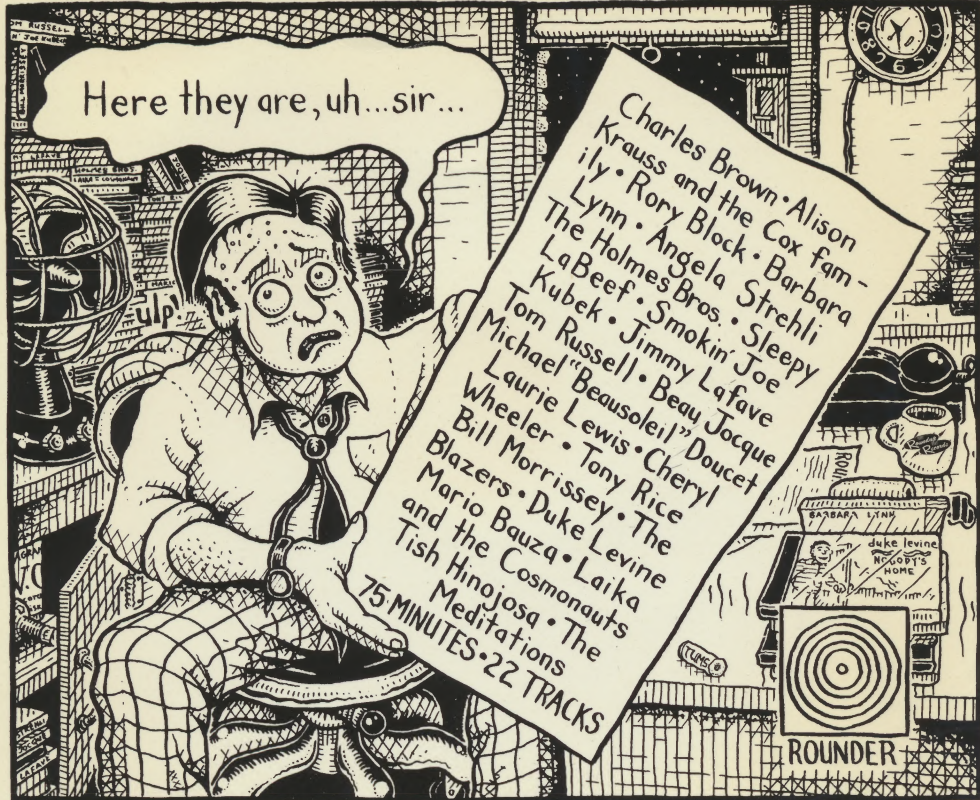 RUSSELL
JOE KUBEK
BILL MORRISSEY
Here they are, uh...sir...
HOLMES BROS.
ulp!
Charles Brown • Alison
Krauss and the Cox fam-
ily • Rory Block • Barbara
Lynn • Angela Strehli
The Holmes Bros. • Sleepy
LaBeef • Smokin' Joe
Kubek • Jimmy LaFave
Tom Russell • Beau Jocque
Michael "Beausoleil" Doucet
Laurie Lewis • Cheryl
Wheeler • Tony Rice
Bill Morrissey • The
Blazers • Duke Levine
Mario Bauza • Laika
and the Cosmonauts
Tish Hinojosa • The
Meditations
75 MINUTES • 22 TRACKS
9 8 7 6 5 4
Roundup
Records
ROUN
BARBARA LYNN
duke levine
NOBODY'S
HOME
TUMS
ROUNDER
LAFAVE